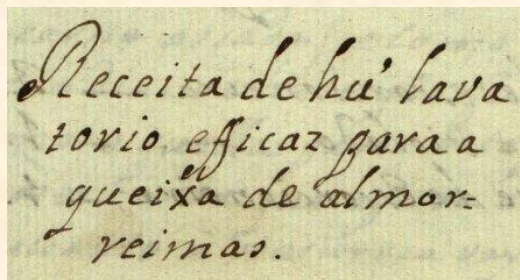 Receita de hũ lava
torio efficaz para a
queixa de almor=
reimas.